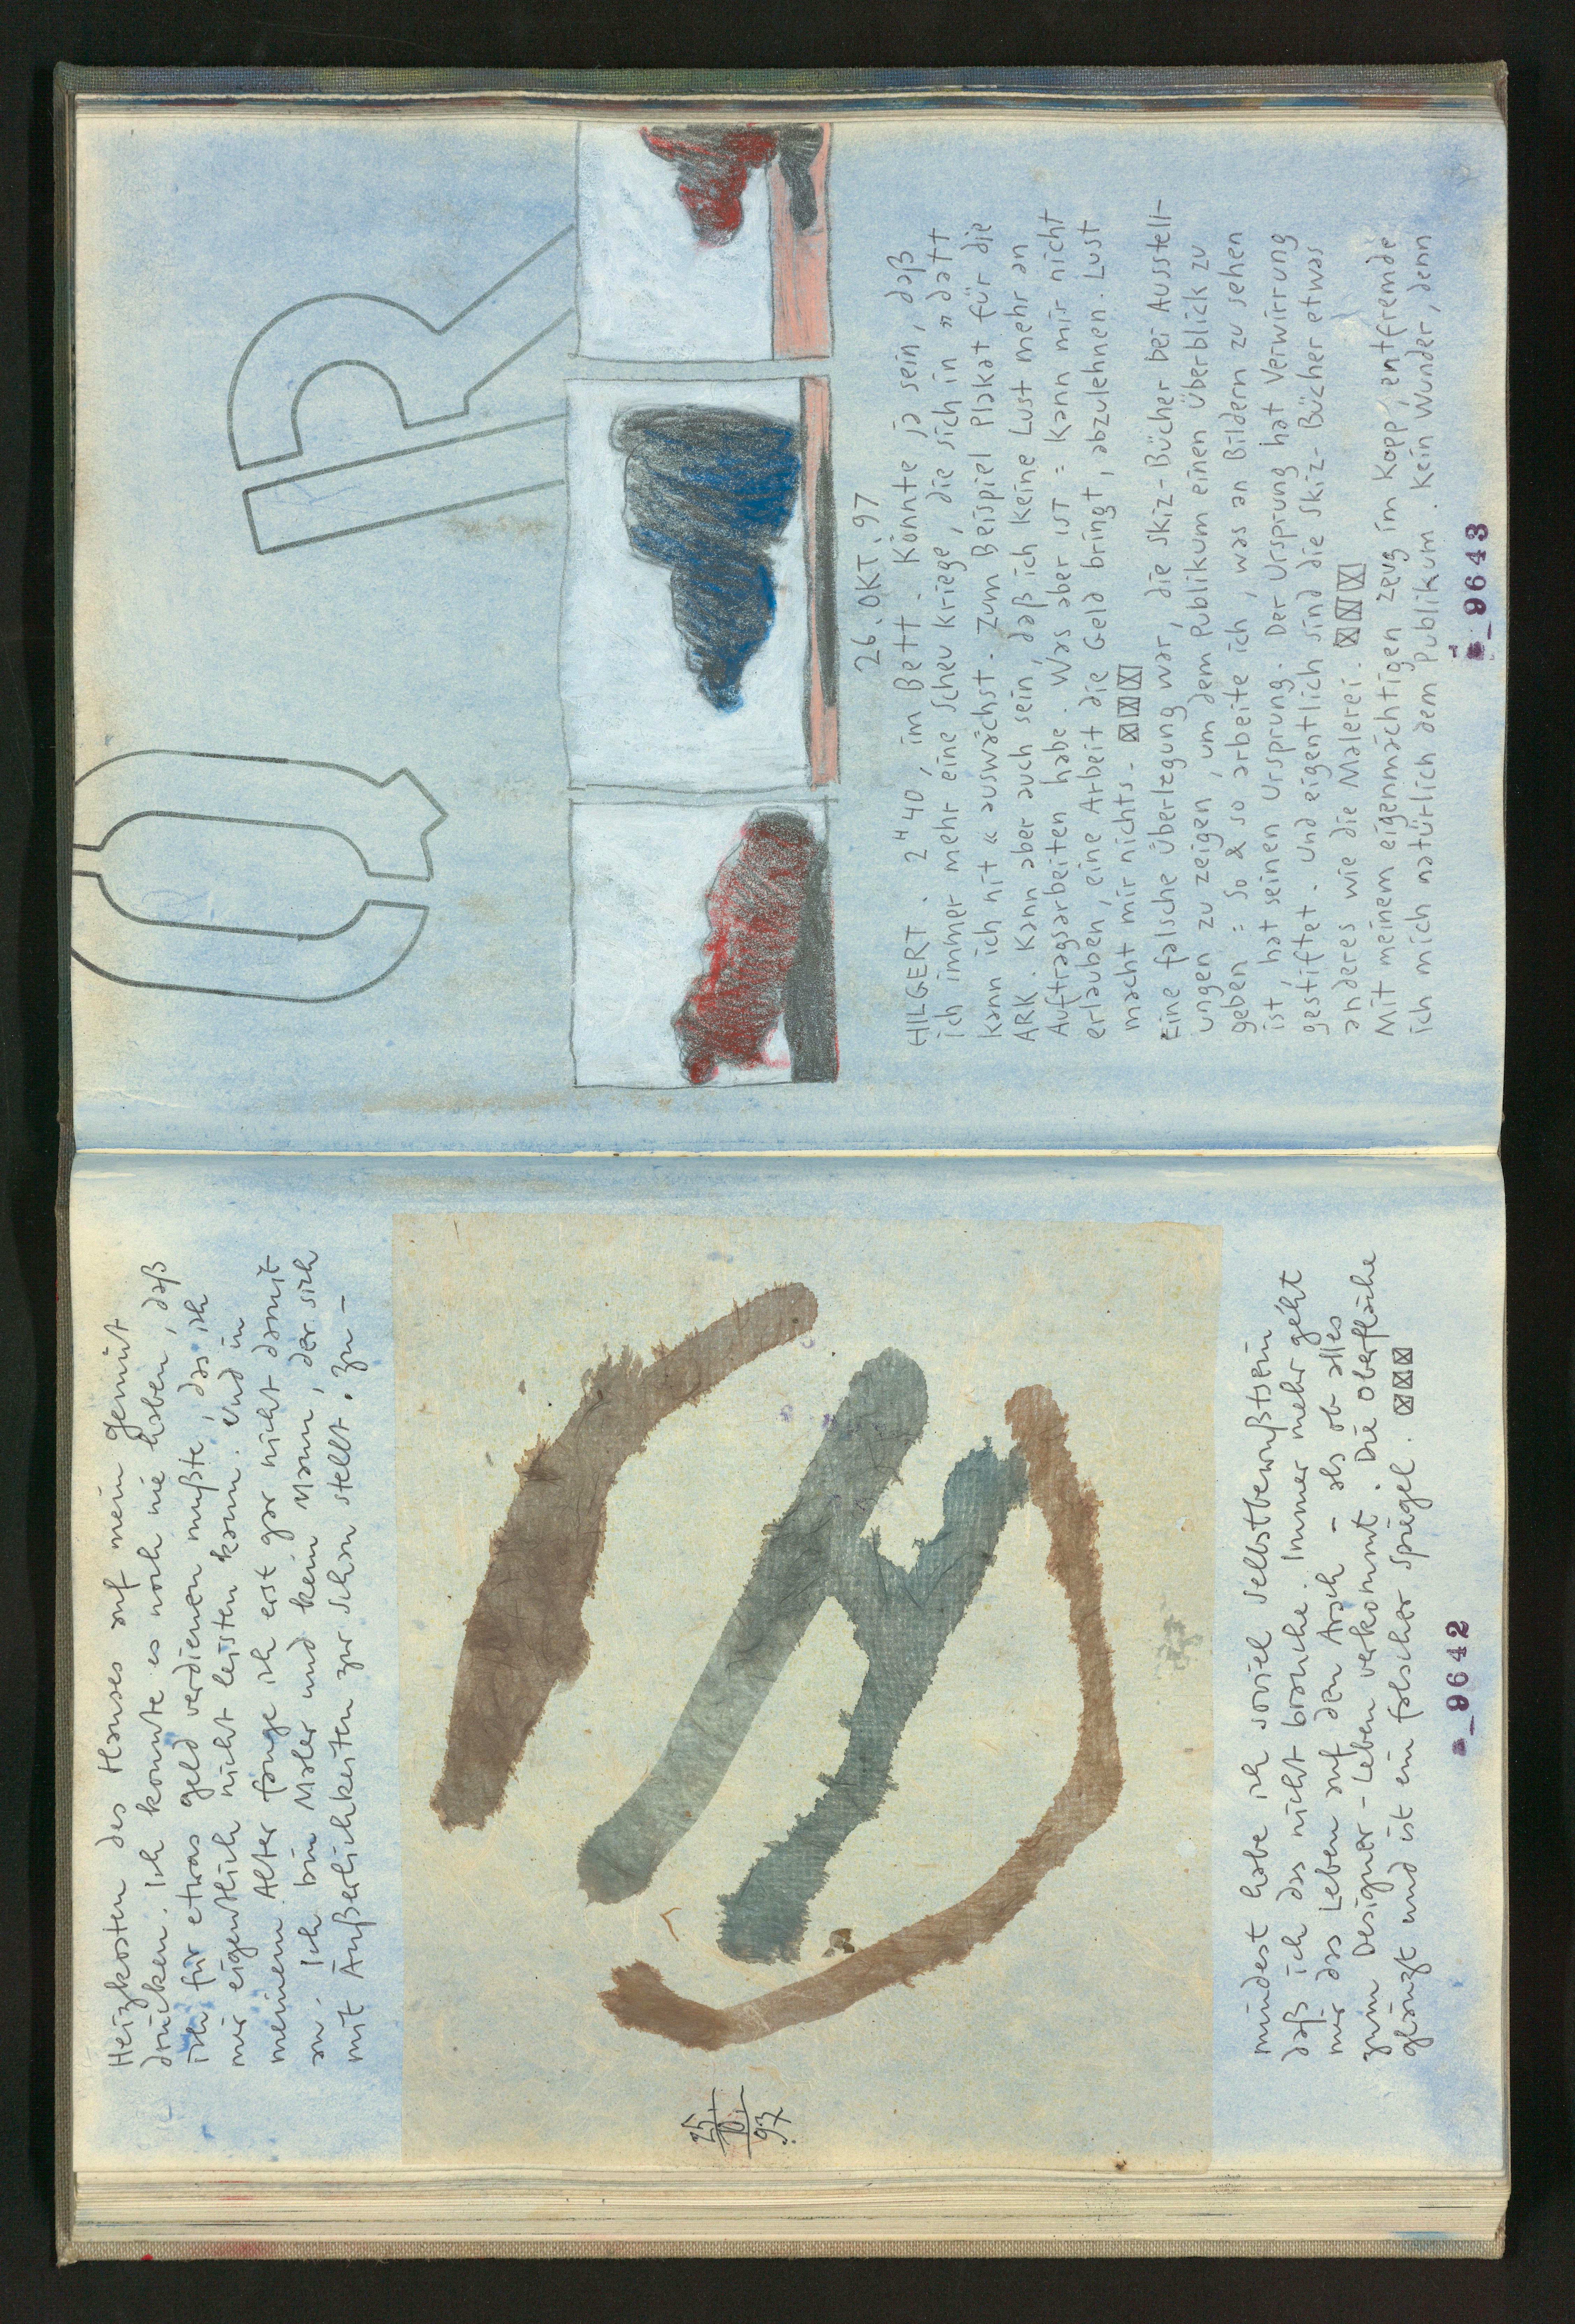 Heizkosten des Hauses auf mein Gemüt
drücken. Ich konnte es noch nie haben, daß
ich für etwas Geld verdienen mußte, das ich
mir eigentlich nicht leisten kann. Und in
meinem Alter fange ich erst gar nicht damit
an. Ich bin Maler und kein Mann, der sich
mit Äußerlichkeiten zur Schau stellt. Zu-
25
10
97
mindest habe ich soviel Selbstbewußtsein
daß ich das nicht brauche. Immer mehr geht
mir das Leben auf den Arsch - als ob alles
zum Designer-Leben verkommt. Die Oberfläche
glänzt und ist ein falscher Spiegel.
_9642
Q R
26.OKT.97
HILGERT. 2H40, im Bett. Könnte ja sein, daß
ich immer mehr eine Scheu kriege, die sich in „datt
kann ich nit“ auswächst. Zum Beispiel Plakat für die
ARK. Kann aber auch sein, daß ich keine Lust mehr an
Auftragsarbeiten habe. Was aber ist: Kann mir nicht
erlauben, eine Arbeit die Geld bringt, abzulehnen. Lust
macht mir nichts.
Eine falsche Überlegung war, die Skiz-Bücher bei Ausstell-
ungen zu zeigen, um dem Publikum einen Überblick zu
geben: so & so arbeite ich, was an Bildern zu sehen
ist, hat seinen Ursprung. Der Ursprung hat Verwirrung
gestiftet. Und eigentlich sind die Skiz-Bücher etwas
anderes wie die Malerei.
Mit meinem eigenmächtigen Zeug im Kopp, entfremde
ich mich natürlich dem Publikum. Kein Wunder, denn
_9643